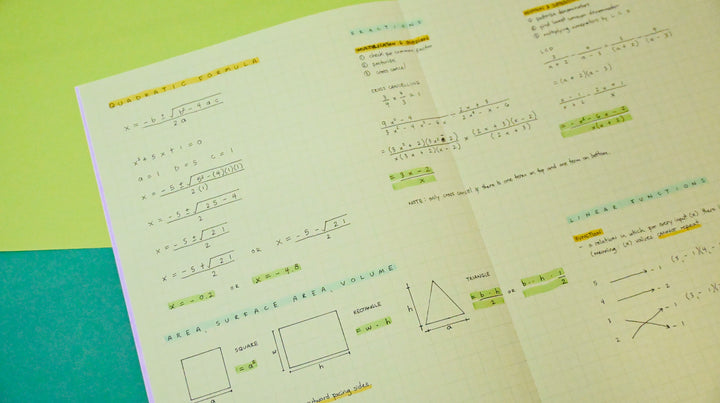 QUADRATIC FORMULA
x = -b ± √b² - 4ac / 2a
x² + 5x + 1 = 0
a = 1 b = 5 c = 1
x = -5 ± √5² - (4)(1)(1) / 2(1)
x = -5 ± √25 - 4 / 2
x = -5 ± √21 / 2
x = -5 + √21 / 2 OR x = -5 - √21 / 2
x = -0.2 OR x = -4.8
AREA, SURFACE AREA, VOLUME
SQUARE
= a²
a
RECTANGLE
= w · h
w
h
TRIANGLE
b · h / 2 OR b · h · 1 / 2
h
a
outward facing sides.
FRACTIONS
MULTIPLICATION & DIVISION
① check for common factor
② factorise
③ cross cancel
CROSS CANCELLING
= 1
9x² - 4 / 3x² - 4x² ÷ 2x + 3 / 2x² - x - 6
= (3x + 2)(3x - 2) / x(3x + 2)(x - 2) × (2x + 3)(x - 2) / (2x + 3)
= 3x - 2 / x
NOTE: only cross cancel if there is one term on top and one term on bottom.
① factorise denominators
② find lowest common denominator
③ multiplying numerators by L.C.D
LCD
= (a + 2)(a - 3)
x - 1 / x - 2x + 1 / x
LINEAR FUNCTIONS
FUNCTION
- a relation in which for every input (x) there
(meaning: (x) values cannot repeat
5 → -1
4 → -2
3
2
-1
-1